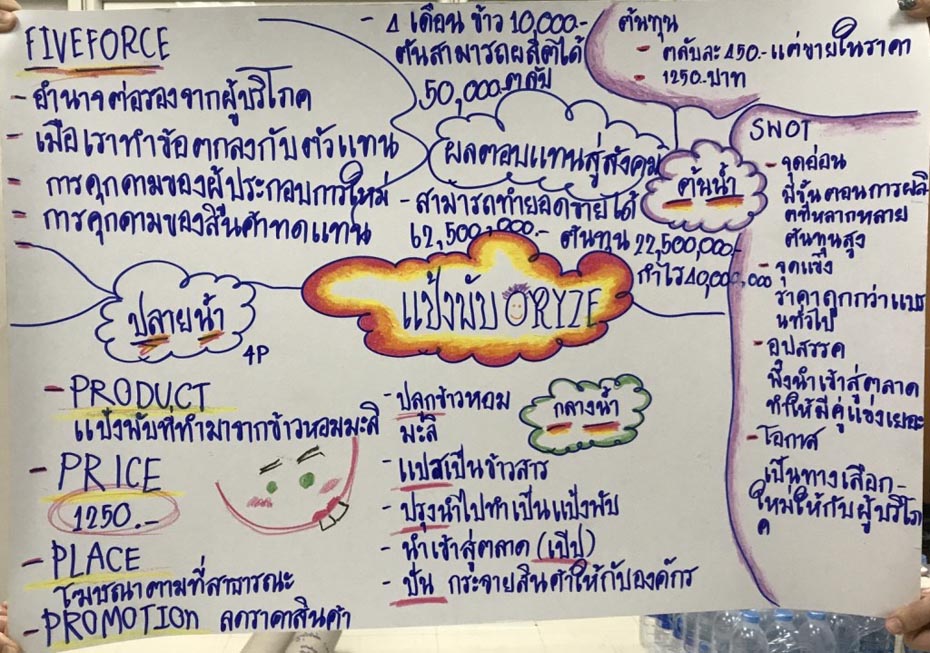 FIVEFORCE
- อำนาจต่อรองจากผู้บริโภค
- เมื่อเราทำข้อตกลงกับตัวแทน
- การคุกคามของผู้ประกอบการใหม่
- การคุกคามของสินค้าทดแทน
- 4 เดือน ข้าว 10,000.-
ต้นสามารถผลิตได้
50,000 ตลับ
ผลตอบแทนสู่สังคม
- สามารถทำยอดขายได้
62,500,000.- ต้นทุน 22,500,000/-
กำไร 40,000,000
ต้นทุน
- ตลับละ 450.- แต่ขายในราคา
- 1250.-บาท
ต้นน้ำ
SWOT
- จุดอ่อน
มีขั้นตอนการผลิ
ตที่หลากหลาย
ต้นทุนสูง
- จุดแข็ง
ราคาถูกกว่าแบร
นทั่วไป
- อุปสรรค
พึ่งนำเข้าสู่ตลาด
ทำให้มีคู่แข่งเยอะ
- โอกาส
เป็นทางเลือก-
ใหม่ให้กับผู้บริโภ
ค
แป้งพับ ORYZE
ปลายน้ำ
4P
- PRODUCT
แป้งพับที่ทำมาจากข้าวหอมมะลิ
- PRICE
1250.-
- PLACE
โฆษณาตามที่สาธารณะ
- PROMOTION ลดราคาสินค้า
กลางน้ำ
- ปลูกข้าวหอม
มะลิ
- แปรเป็นข้าวสาร
- ปรุงนำไปทำเป็นแป้งพับ
- นำเข้าสู่ตลาด (เป๋ป)
- ปั่น กระจายสินค้าให้กับองค์กร